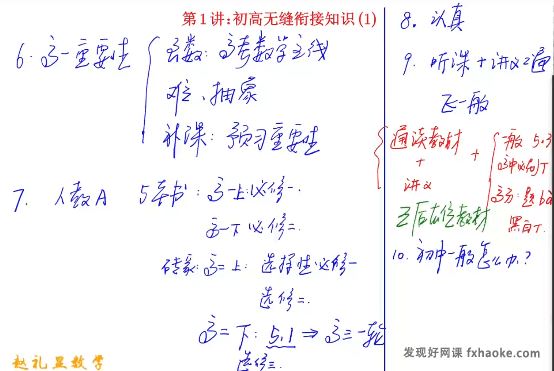 第1讲:初高无缝衔接知识(1)
6. 高一重要性
函数:高考数学主线
难、抽象
补课:预习重要性
7. 人教A 5本书:高一上:必修一.
高一下 必修二.
高二上:选择性必修一
选修二.
高二下:5.1 ⇒ 高三一轮
选修三.
8. 认真
9. 听课+讲义2遍
飞一般
通读教材
+
讲义
+
一般 5.3
高分:题
黑白T.
之后
教材
10. 初中一般怎么办?
赵礼显数学
发现好网课 fxhaoke.com